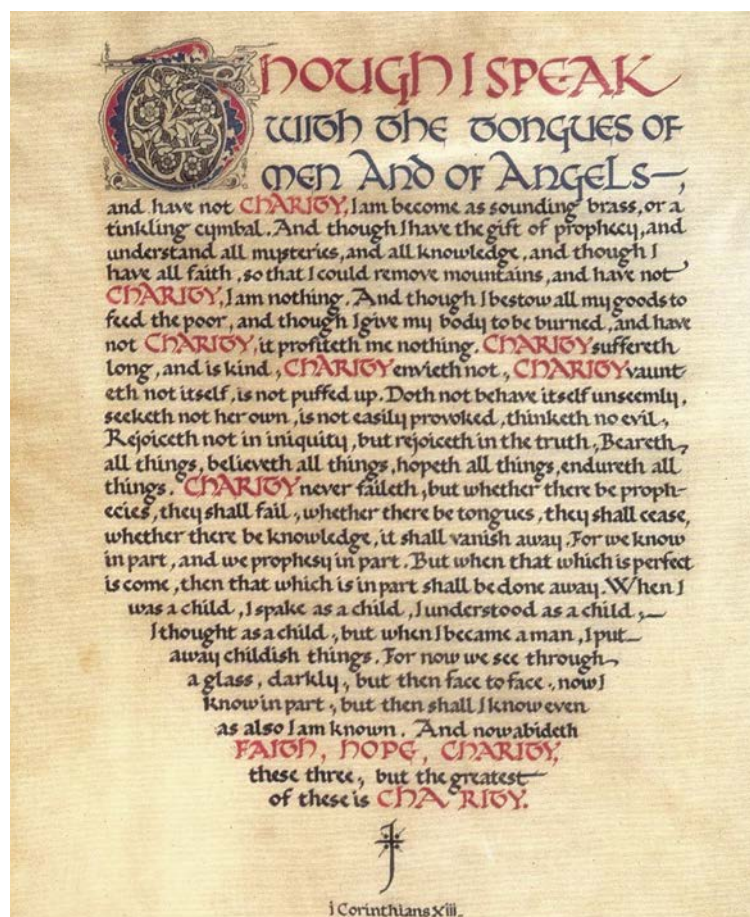 THOUGH I SPEAK
WITH THE TONGUES OF
MEN AND OF ANGELS—,
and have not CHARITY, I am become as sounding brass, or a
tinkling cymbal. And though I have the gift of prophecy, and
understand all mysteries, and all knowledge, and though I
have all faith, so that I could remove mountains, and have not
CHARITY, I am nothing. And though I bestow all my goods to
feed the poor, and though I give my body to be burned, and have
not CHARITY, it profiteth me nothing. CHARITY suffereth
long, and is kind, CHARITY envieth not, CHARITY vaunt-
eth not itself, is not puffed up. Doth not behave itself unseemly,
seeketh not her own, is not easily provoked, thinketh no evil,
Rejoiceth not in iniquity, but rejoiceth in the truth, Beareth
all things, believeth all things, hopeth all things, endureth all
things. CHARITY never faileth, but whether there be proph-
ecies, they shall fail, whether there be tongues, they shall cease,
whether there be knowledge, it shall vanish away. For we know
in part, and we prophesy in part. But when that which is perfect
is come, then that which is in part shall be done away. When I
was a child, I spake as a child, I understood as a child,
I thought as a child, but when I became a man, I put
away childish things. For now we see through
a glass, darkly, but then face to face, now I
know in part, but then shall I know even
as also I am known. And now abideth
FAITH, HOPE, CHARITY,
these three, but the greatest
of these is CHARITY.
i Corinthians xiii.